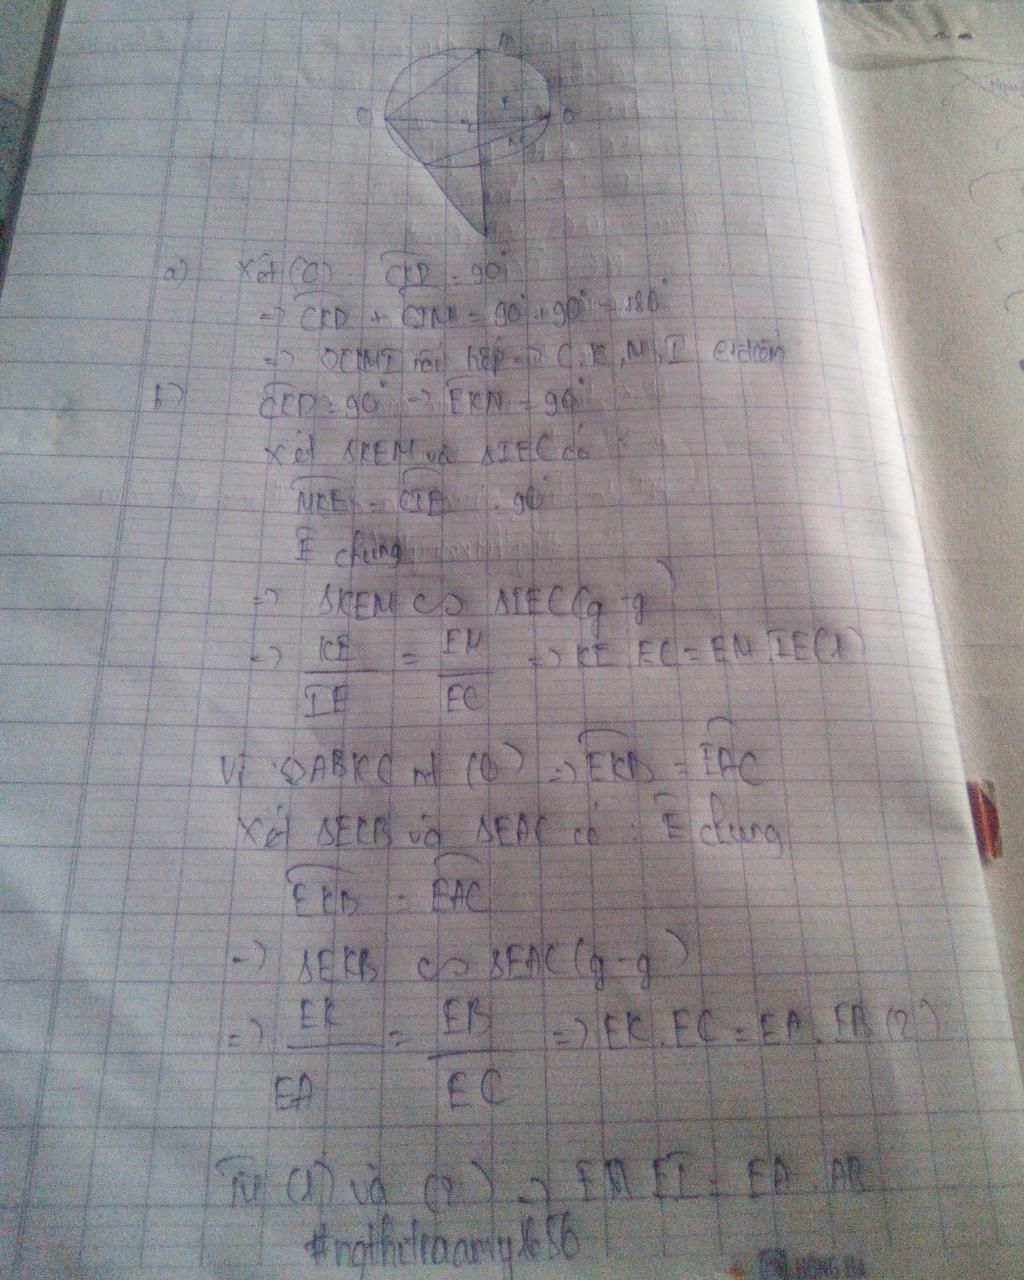 a) Xét (O) : CKD = 90°
=> CKD + CIM = 90° + 90° = 180°
=> ◊CKMI nội tiếp => C, K, M, I
b) CKD = 90° => EKM = 90°
Xét ΔKEM và ΔIEC có :
MKE = CIE = 90°
E chung
=> ΔKEM ∽ ΔIEC (g-g)
=> KE/IE = EM/EC => KE.EC = EM.IE (1)
Vì ◊ABKC nt (O) => EKB = EAC
Xét ΔEKB và ΔEAC có : E chung
EKB = EAC
=> ΔEKB ∽ ΔEAC (g-g)
=> EK/EA = EB/EC => EK.EC = EA.EB (2)
Từ (1) và (2) => EM.EI = EA.AB